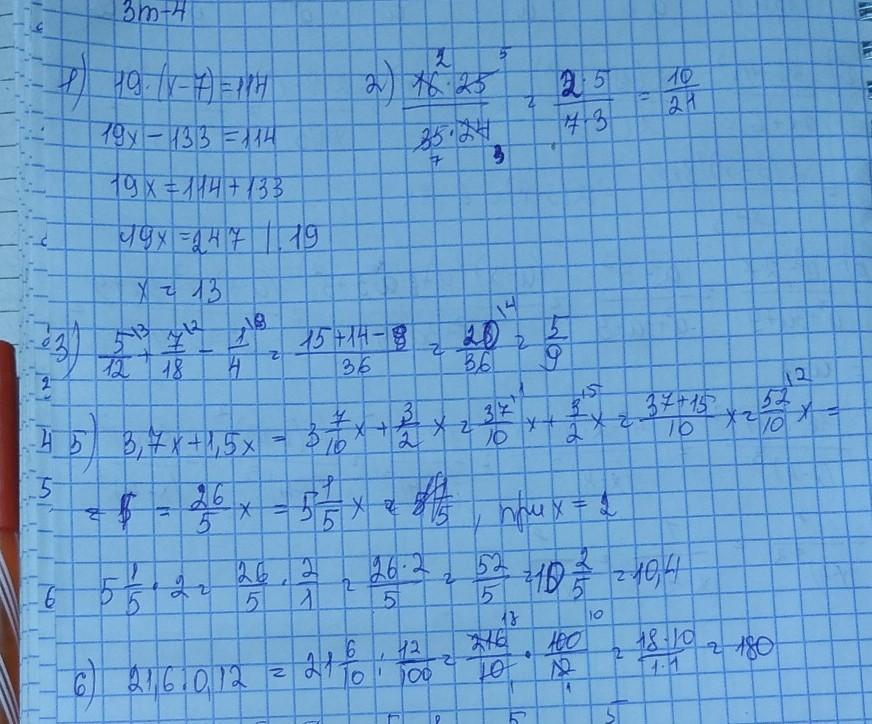 3m-4
1) 19·(x-7)=114
2) 16·25/35·24 = 2·5/7·3 = 10/21
19x-133=114
19x=114+133
19x=247 |:19
x=13
3) 5/12+7/18-1/4=15+14-9/36=20/36=5/9
5) 3,7x+1,5x=3 7/10x+3/2x=37/10x+3/2x=37+15/10x=52/10x=
= = 26/5x=5 1/5x= , при x=2
5 1/5·2=26/5·2/1=26·2/5=52/5=10 2/5=10,4
6) 21,6:0,12=21 6/10:12/100=216/10·100/12=18·10/1·1=180